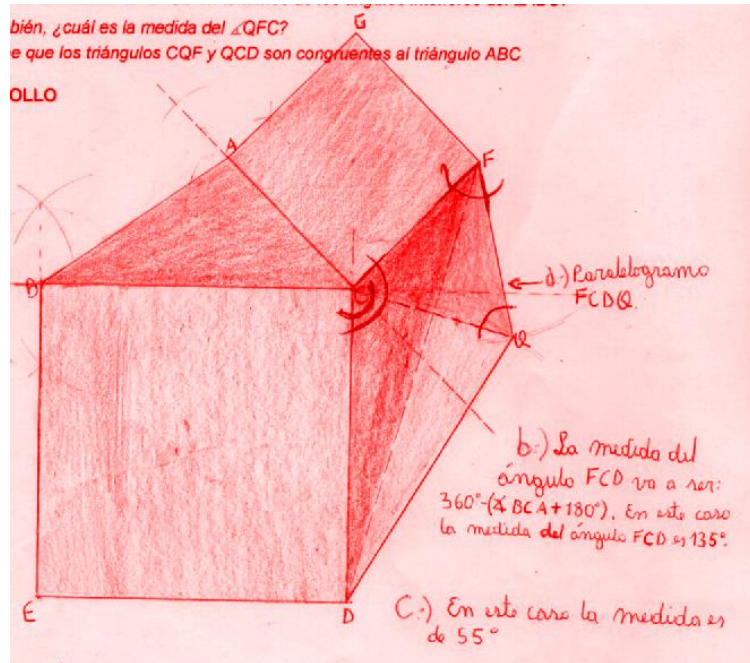 bién, ¿cuál es la medida del ∡QFC?
e que los triángulos CQF y QCD son congruentes al triángulo ABC
OLLO
G
A
F
B
C
d.) Paralelogramo
FCDQ.
Q
b.) La medida del
ángulo FCD va a ser:
360°-(∡ BCA+180°). En este caso
la medida del ángulo FCD es 135°.
E
D
C.) En este caso la medida es
de 55°